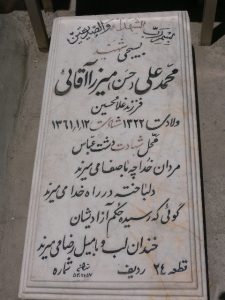 بسم رب الشهداء والصدیقین
بسیجی شهید
محمد علی حسن میرزا آقائی
فرزند غلامحسین
ولادت ۱۳۲۲ شهادت ۱۳۶۱٫۱٫۱۲
محل شهادت دشت عباس
مردان خدا چه با صفا می میرند
دلباخته در راه خدا می میرند
گوئی که رسیده حکم آزادیشان
خندان لب و با میل رضا می میرند
قطعه ۲۴ ردیف شماره